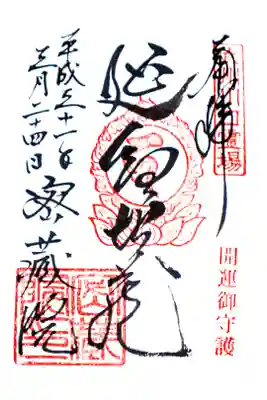 奉拝
開運御守護
延命地蔵尊
平成三十一年
三月二十四日
密蔵院